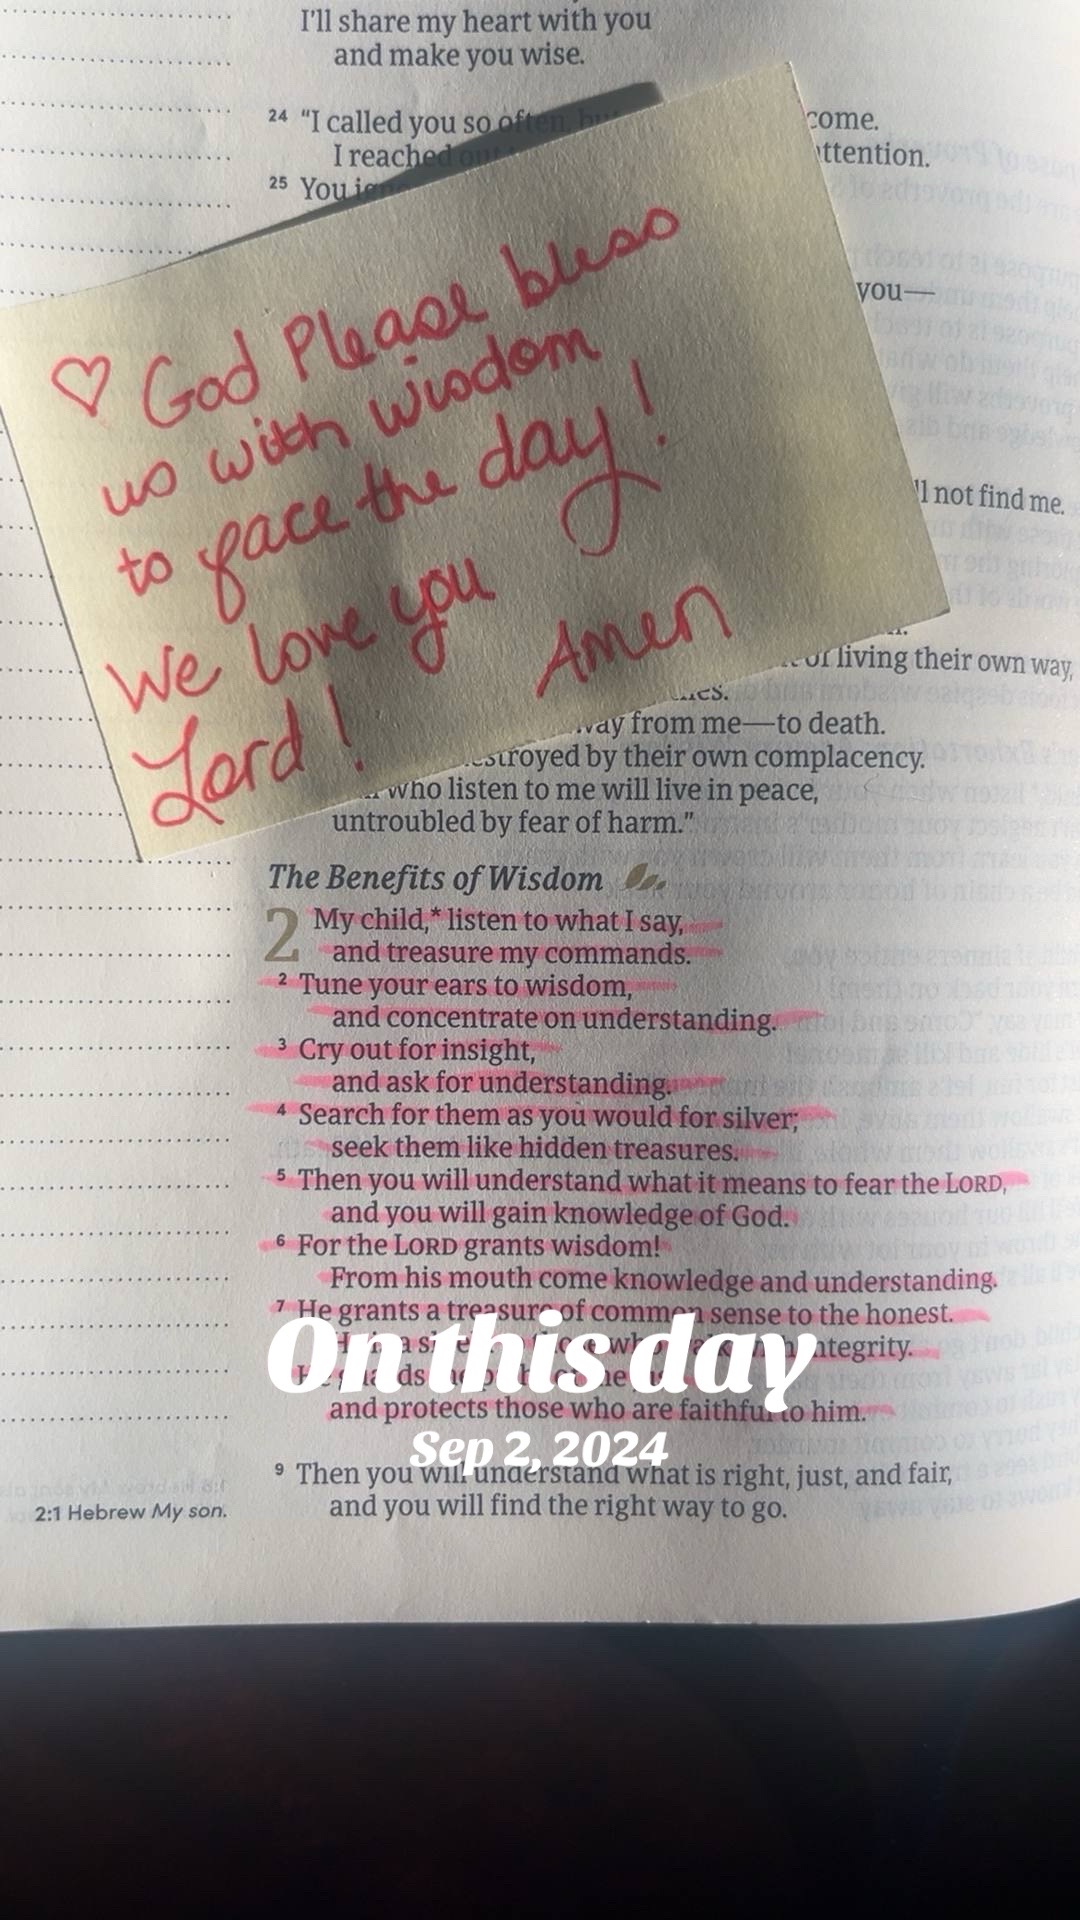 I'll share my heart with you
and make you wise.
24 "I called you so often, but come.
I reached out ttention.
25 You
you—
'll not find me.
♡ God Please bless
us with wisdom
to face the day!
We love you
Lord! Amen
of living their own way,
way from me—to death.
destroyed by their own complacency.
who listen to me will live in peace,
untroubled by fear of harm."
The Benefits of Wisdom
2 My child,* listen to what I say,
and treasure my commands.
2 Tune your ears to wisdom,
and concentrate on understanding.
3 Cry out for insight,
and ask for understanding.
4 Search for them as you would for silver;
seek them like hidden treasures.
5 Then you will understand what it means to fear the LORD,
and you will gain knowledge of God.
6 For the LORD grants wisdom!
From his mouth come knowledge and understanding.
7 He grants a treasure of common sense to the honest.
integrity.
On this day
and protects those who are faithful to him.
Sep 2, 2024
9 Then you will understand what is right, just, and fair,
and you will find the right way to go.
2:1 Hebrew My son.